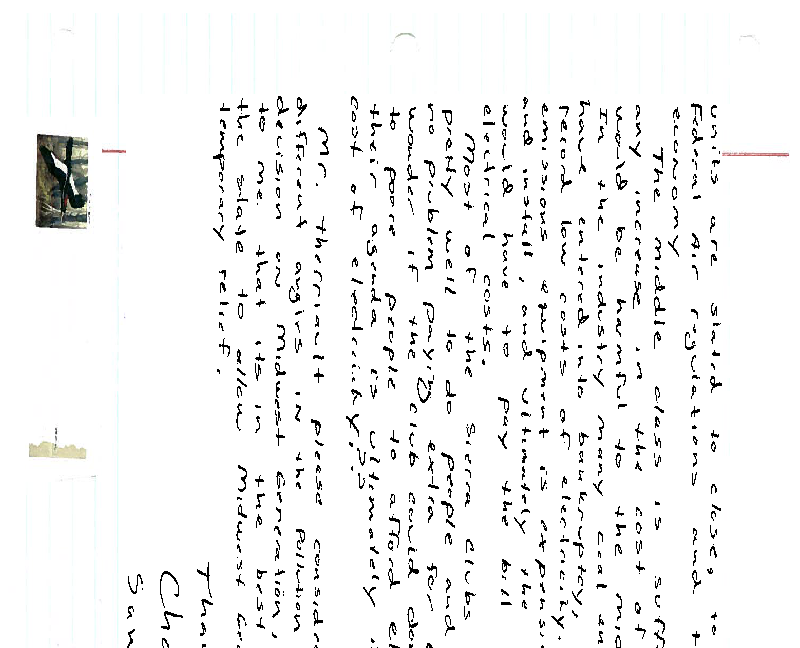 units are slated to close, to
Federal Air regulations and t
economy
The middle class is suff
any increase in the cost of
would be harmful to the mid
In the industry many coal en
have entered into bankruptcy,
record low costs of electricity.
emissions equipment is expensi
and install, and ultimately the
would have to pay the bill
electrical costs.
Most of the Sierra Clubs
pretty well to do people and
no problem paying extra for e
wonder if the club could do
to poore people to afford el
their agenda is ultimately i
cost of electricity??
Mr. Therriault please conside
different angles in the Pollution
decision on Midwest Generation,
to me that its in the best
the state to allow Midwest Ge
temporary relief.
Tha
Cha
San